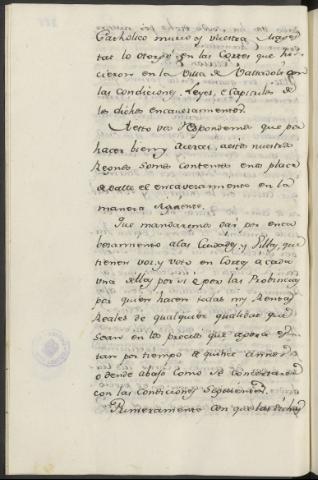 Catholico murio y vuestra Mages
tad lo otorgó en las Cortes que hi-
cieron en la Villa de Valladolid con
las condiciones, Leyes, e Capitulos de
los dichos encavezamientos.
A esto vos respondemos que por
hacer bien y merced, a estos nuestros
Reynos somos contentos e nos place
de darles el encavezamiento en la
manera siguiente.
Que mandaremos dar por enca
bezamiento a las Ciudades, y Villas, que
tienen voz, y voto en Cortes a cada
una dellas por si e por las Probincias
por quien hacen todas mis Rentas
Reales de qualquier qualidad que
sean en los precios que agora es-
tan por tiempo de quince annos
o dende abajo como se concertaren
con las condiciones siguientes.
Primeramente con que las dichas